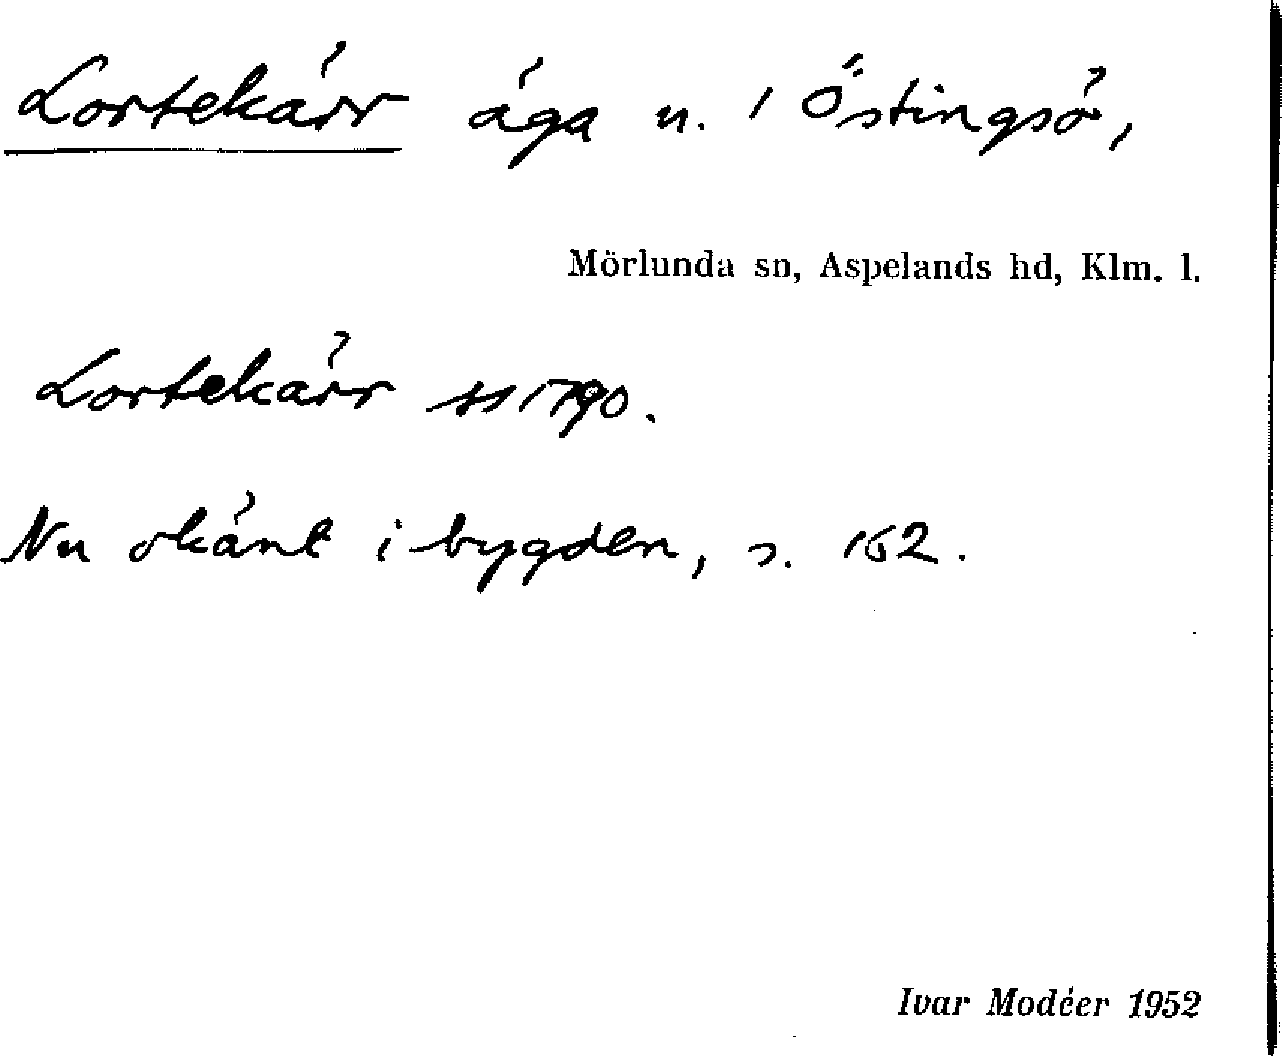 Lortekärr äga u. 1 Östingsö,
Mörlunda sn, Aspelands hd, Klm. l.
Lortekärr ss 1790.
Nu okänt i bygden, s. 162.
Ivar Modéer 1952